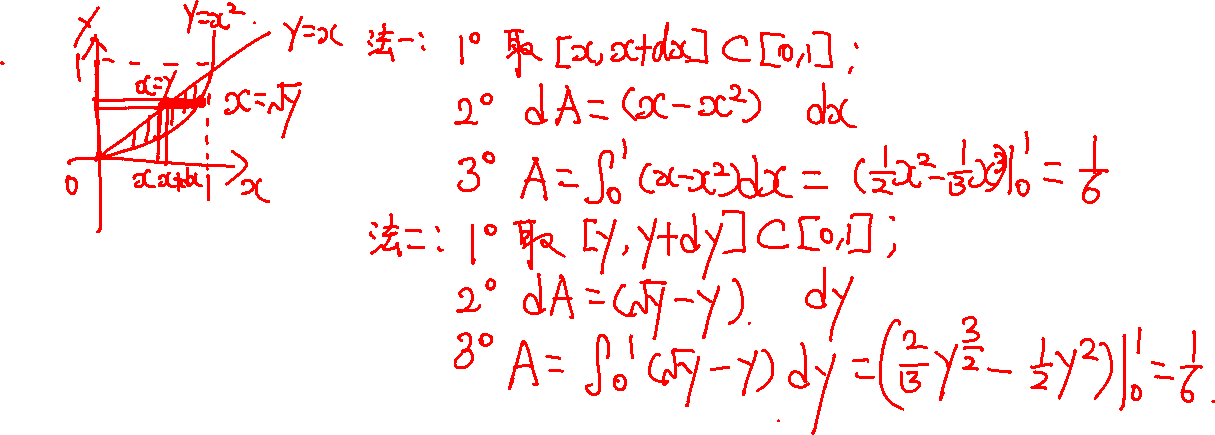 y
y=x²
y=x
1
x=y
x=√y
0 x x+dx 1 x
法一: 1° 取 [x, x+dx] ⊂ [0,1];
2° dA=(x-x²) dx
3° A=∫₀¹(x-x²)dx=(½x²-⅓x³)|₀¹=1/6
法二: 1° 取 [y, y+dy] ⊂ [0,1];
2° dA=(√y-y). dy
3° A=∫₀¹(√y-y)dy=(2/3 y^(3/2) - 1/2 y²)|₀¹=1/6.